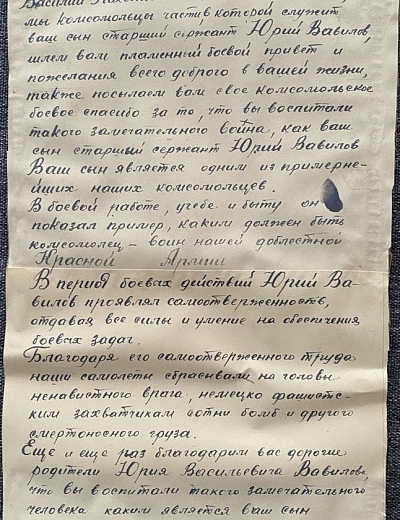 мы комсомольцы части в которой служит
ваш сын старший сержант Юрий Вавилов,
шлем вам пламенный боевой привет и
пожелания всего доброго в вашей жизни,
также посылаем вам свое комсомольское
боевое спасибо за то, что вы воспитали
такого замечательного война, как ваш
сын старший сержант Юрий Вавилов
Ваш сын является одним из примерне-
йших наших комсомольцев.
В боевой работе, учебе и быту он
показал пример, каким должен быть
комсомолец – воин нашей доблестной
Красной Армии
В период боевых действий Юрий Ва-
вилов проявлял самоотверженность,
отдавая все силы и умение на обеспечения
боевых задач.
Благодаря его самоотверженного труда
наши самолеты сбрасывали на головы
ненавистного врага, немецко фашистс-
ким захватчикам сотни бомб и другого
смертоносного груза.
Еще и еще раз благодарим вас дорогие
родители Юрия Васильевича Вавилова,
что вы воспитали такого замечательного
человека каким является ваш сын